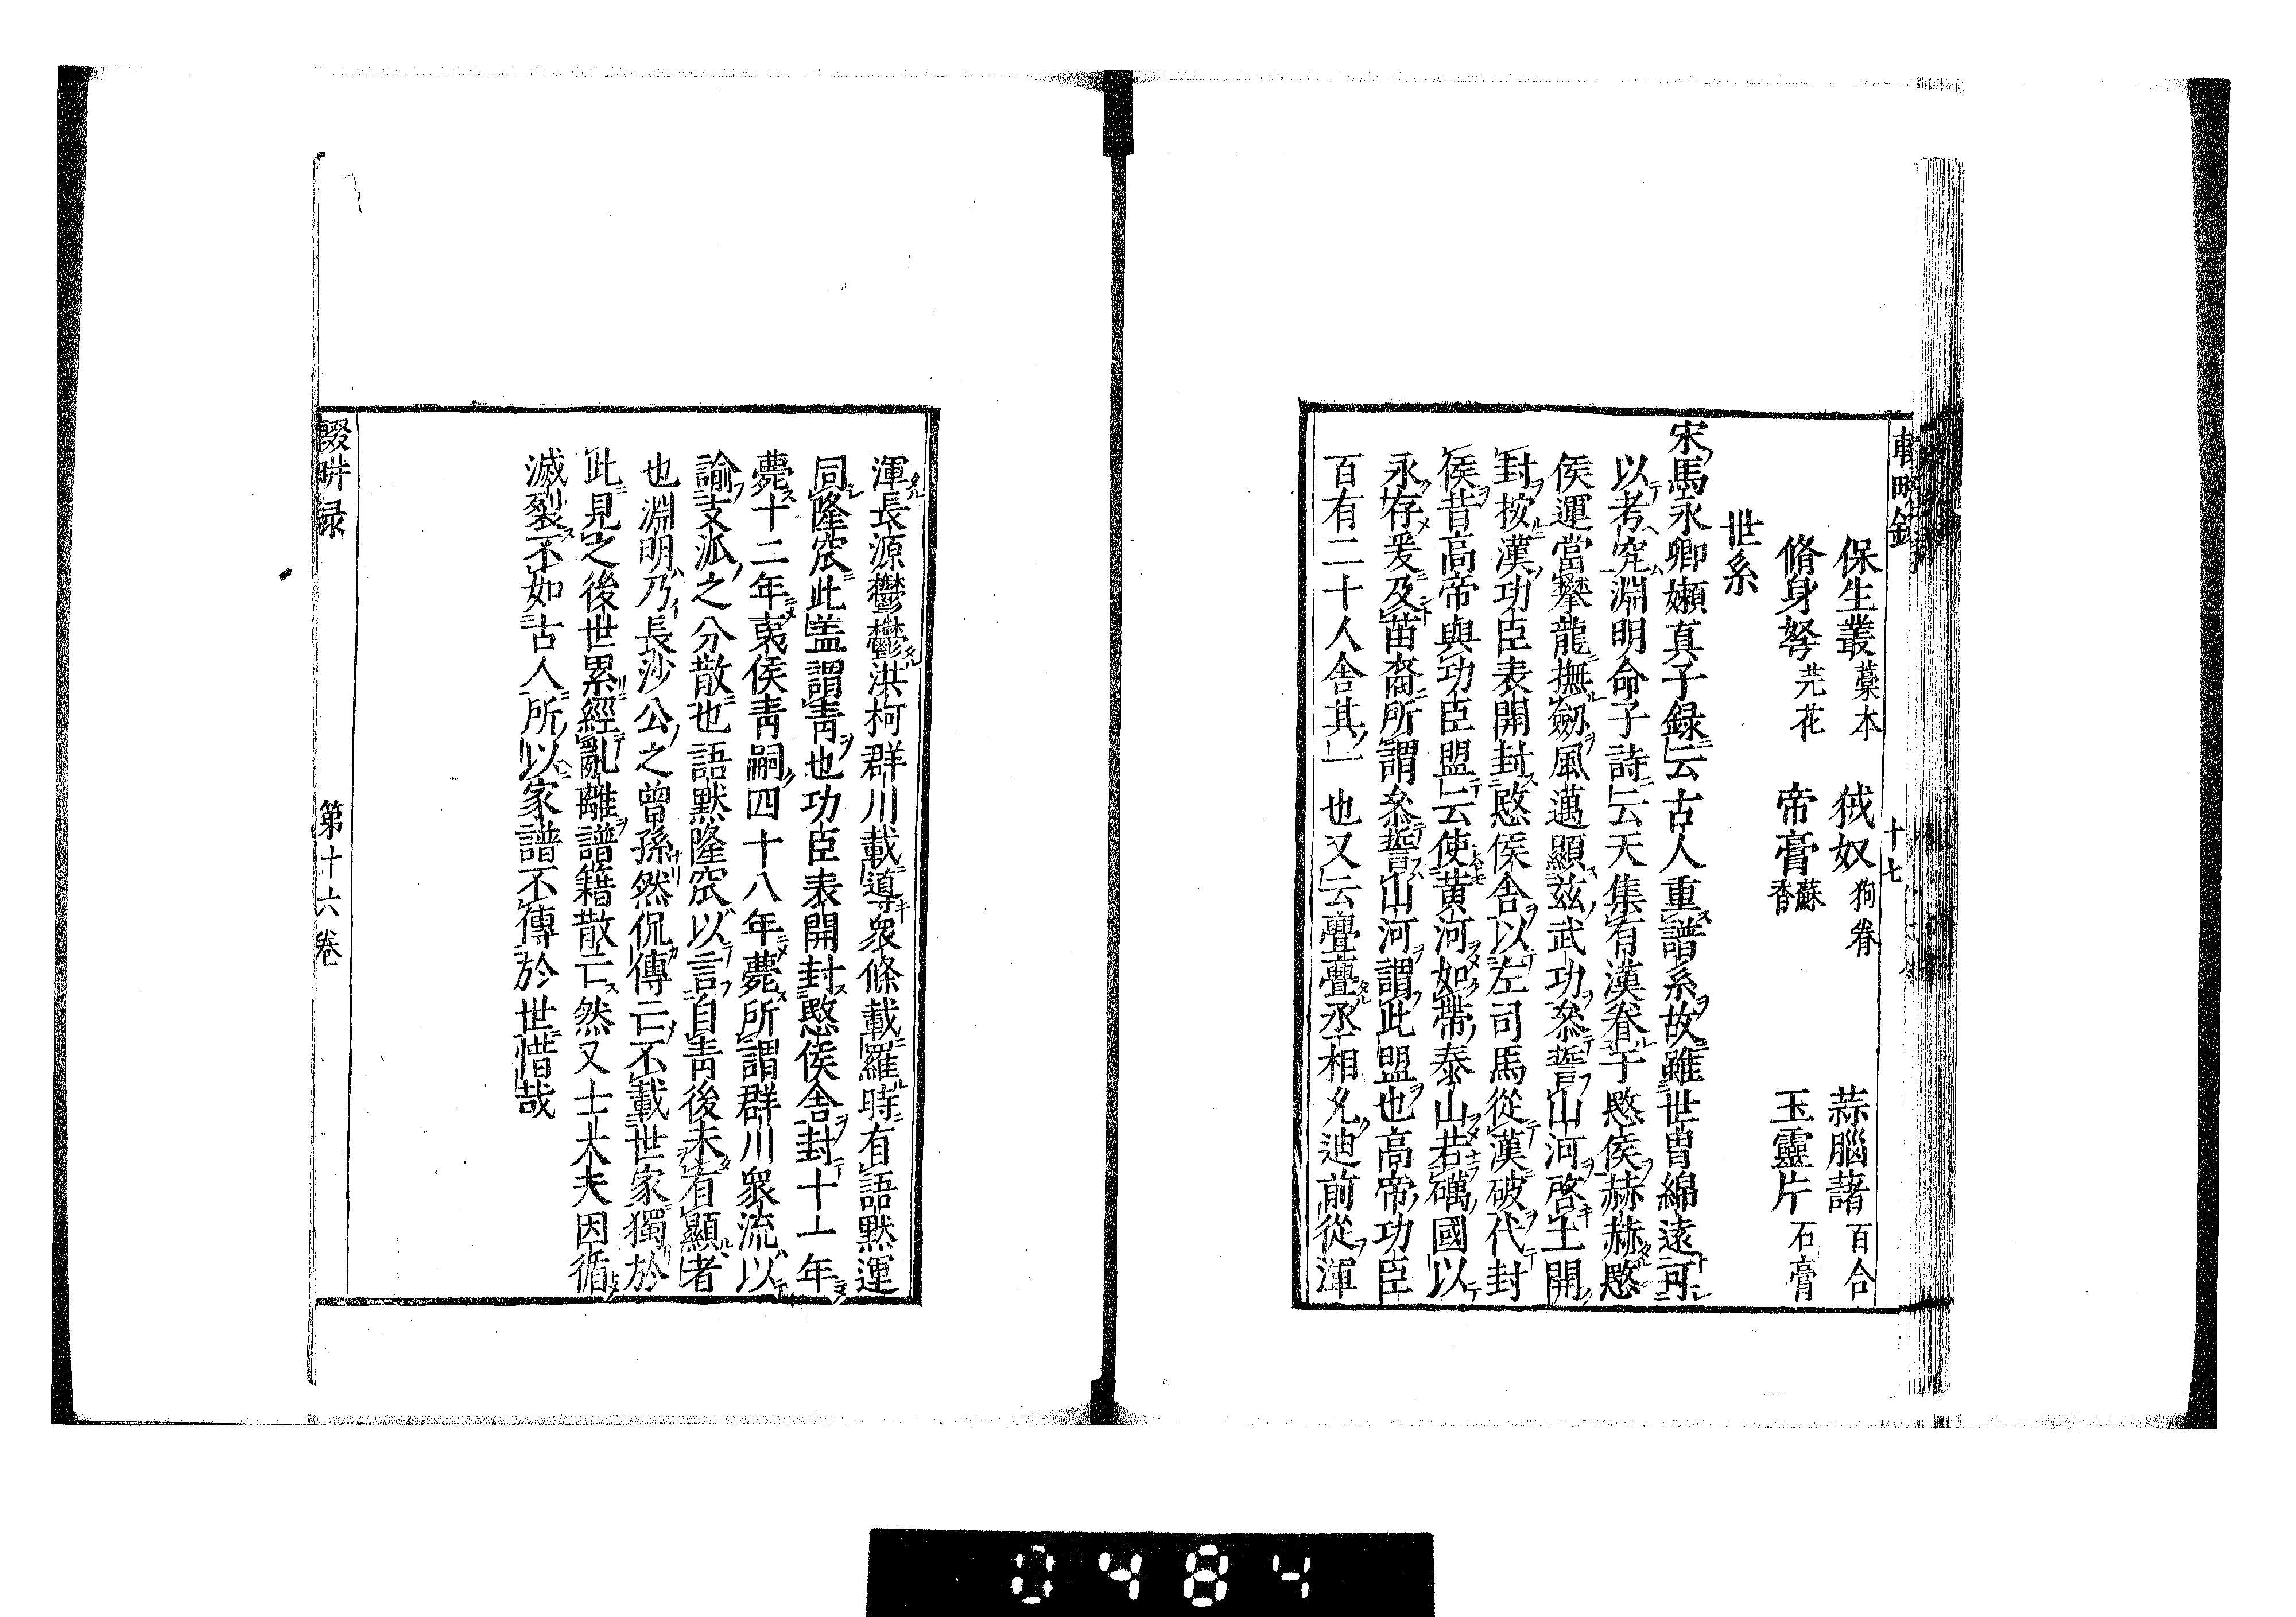 輟畊錄
十七
保生叢 藁本 㹨奴 狗脊 蒜腦藷 百合
脩身弩 芫花 帝膏 蘇香 玉靈片 石膏
世系
宋馬永卿嬾真子録云古人重譜系故雖世冑綿遠可
以考究淵明命子詩云天集有漢眷于愍侯赫赫愍
侯運當攀龍撫劔風邁顯兹武功叅誓山河啓土開
封按漢功臣表開封愍侯舎以左司馬從漢破代封
侯昔高帝與功臣盟云使黄河如帶泰山若礪國以
永存爰及苗裔所謂叅誓山河謂此盟也高帝功臣
百有二十人舎其一也又云亹亹丞相允迪前從渾
渾長源鬱鬱洪柯群川載導衆條載羅時有語默運
同隆窊此盖謂青也功臣表開封愍侯舎封十一年
薨十二年夷侯青嗣四十八年薨所謂群川衆流以
諭支派之分散也語黙隆窊以言自青後未有顯者
也淵明乃長沙公之曽孫然侃傳亡不載世家獨於
此見之後世累經亂離譜籍散亡然又士大夫因循
滅裂不如古人所以家譜不傳於世惜哉
輟畊録
第十六卷
0484